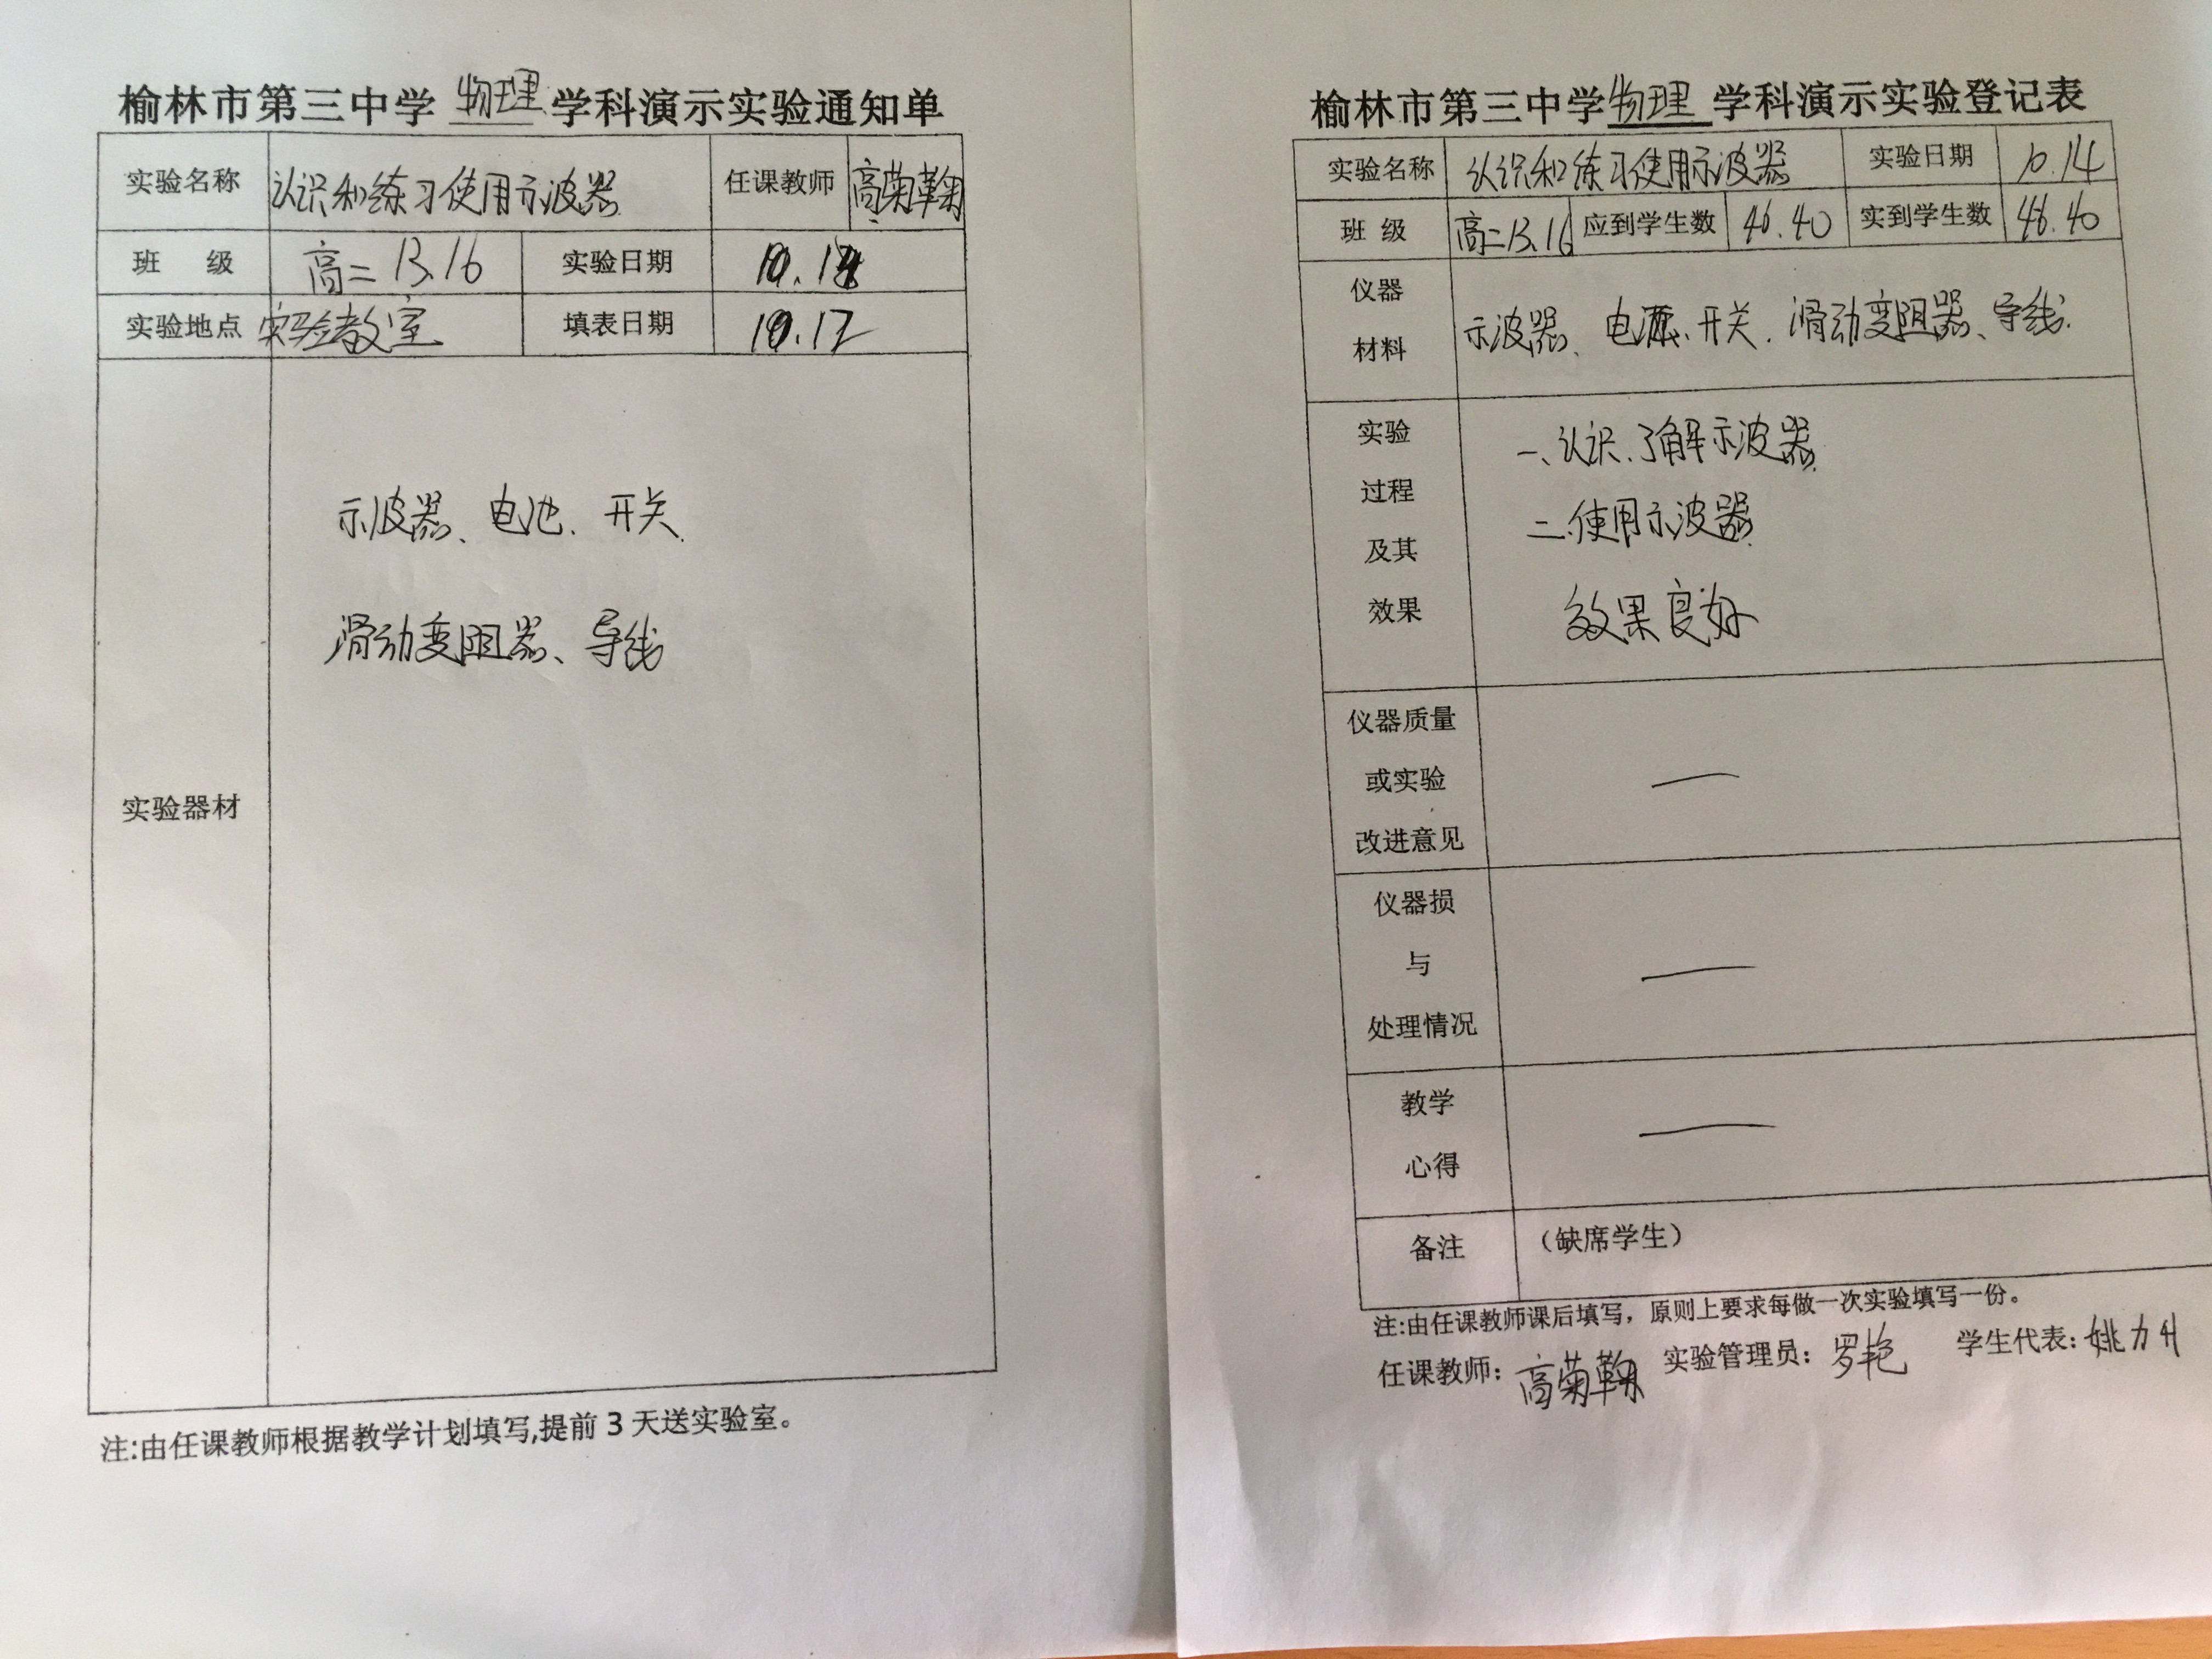 榆林市第三中学 物理 学科演示实验通知单
实验名称 认识和练习使用示波器 任课教师 高菊鞠
班 级 高二 13.16 实验日期
实验地点 实验教室 填表日期 10.12
实验器材
示波器、电池、开关、
滑动变阻器、导线
注:由任课教师根据教学计划填写,提前 3 天送实验室。
榆林市第三中学物理 学科演示实验登记表
实验名称 认识和练习使用示波器 实验日期 10.14
班 级 高二13.16 应到学生数 46.40 实到学生数 46.40
仪器
材料
示波器、电源、开关、滑动变阻器、导线.
实验
过程
及其
效果
一、认识、了解示波器
二.使用示波器
效果良好
仪器质量
或实验
改进意见
—
仪器损
与
处理情况
—
教学
心得
—
备注 （缺席学生）
注:由任课教师课后填写，原则上要求每做一次实验填写一份。
任课教师：高菊鞠 实验管理员：罗艳 学生代表：姚力升